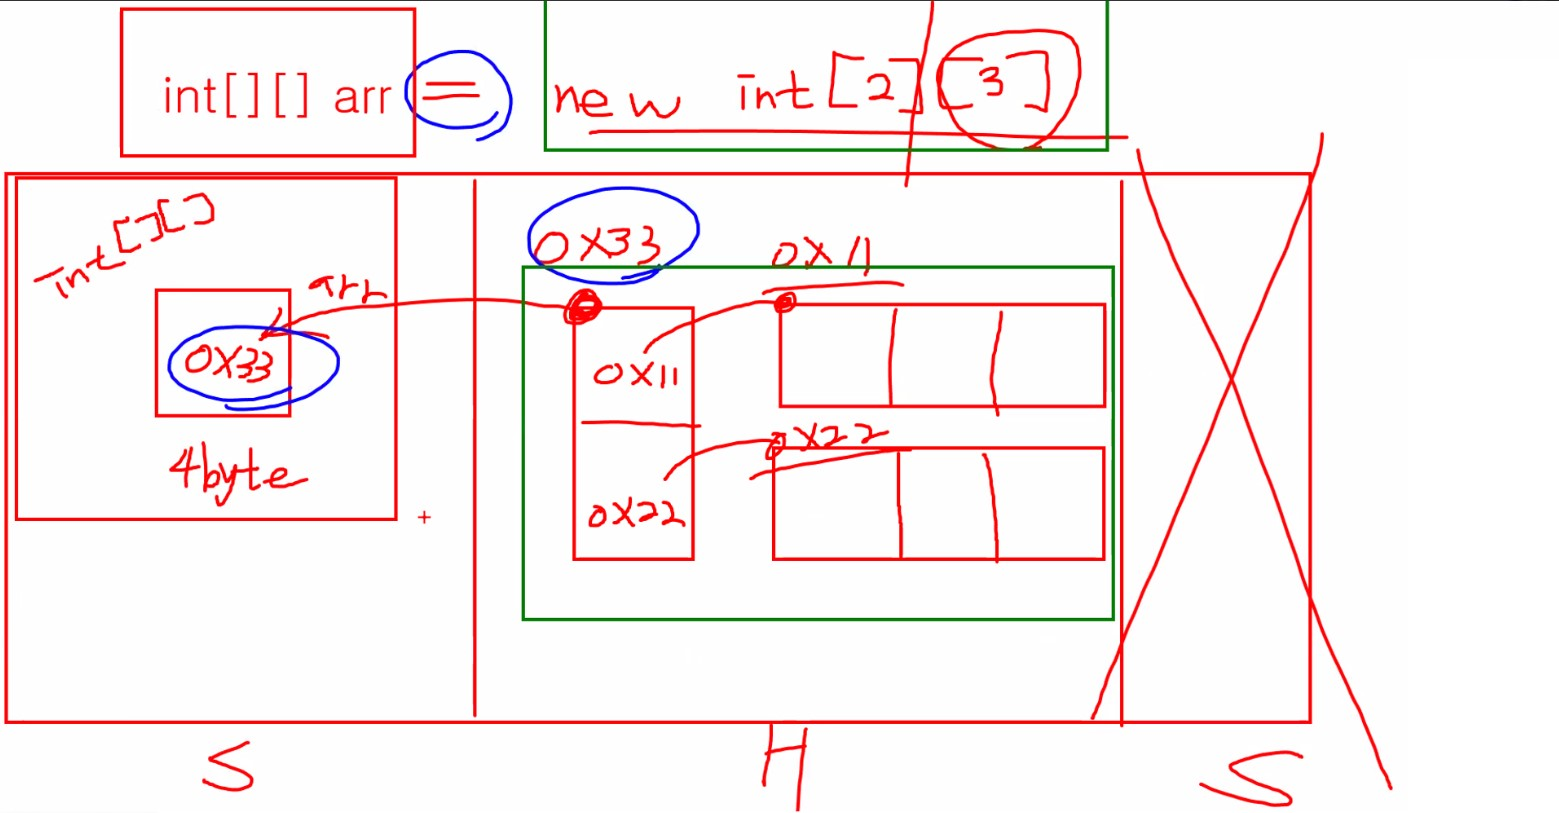 int[][] arr = new int[2][3]
int[][]
arr
0x33
4byte
0x33
0x11
0x11
0x22
0x22
S
H
S